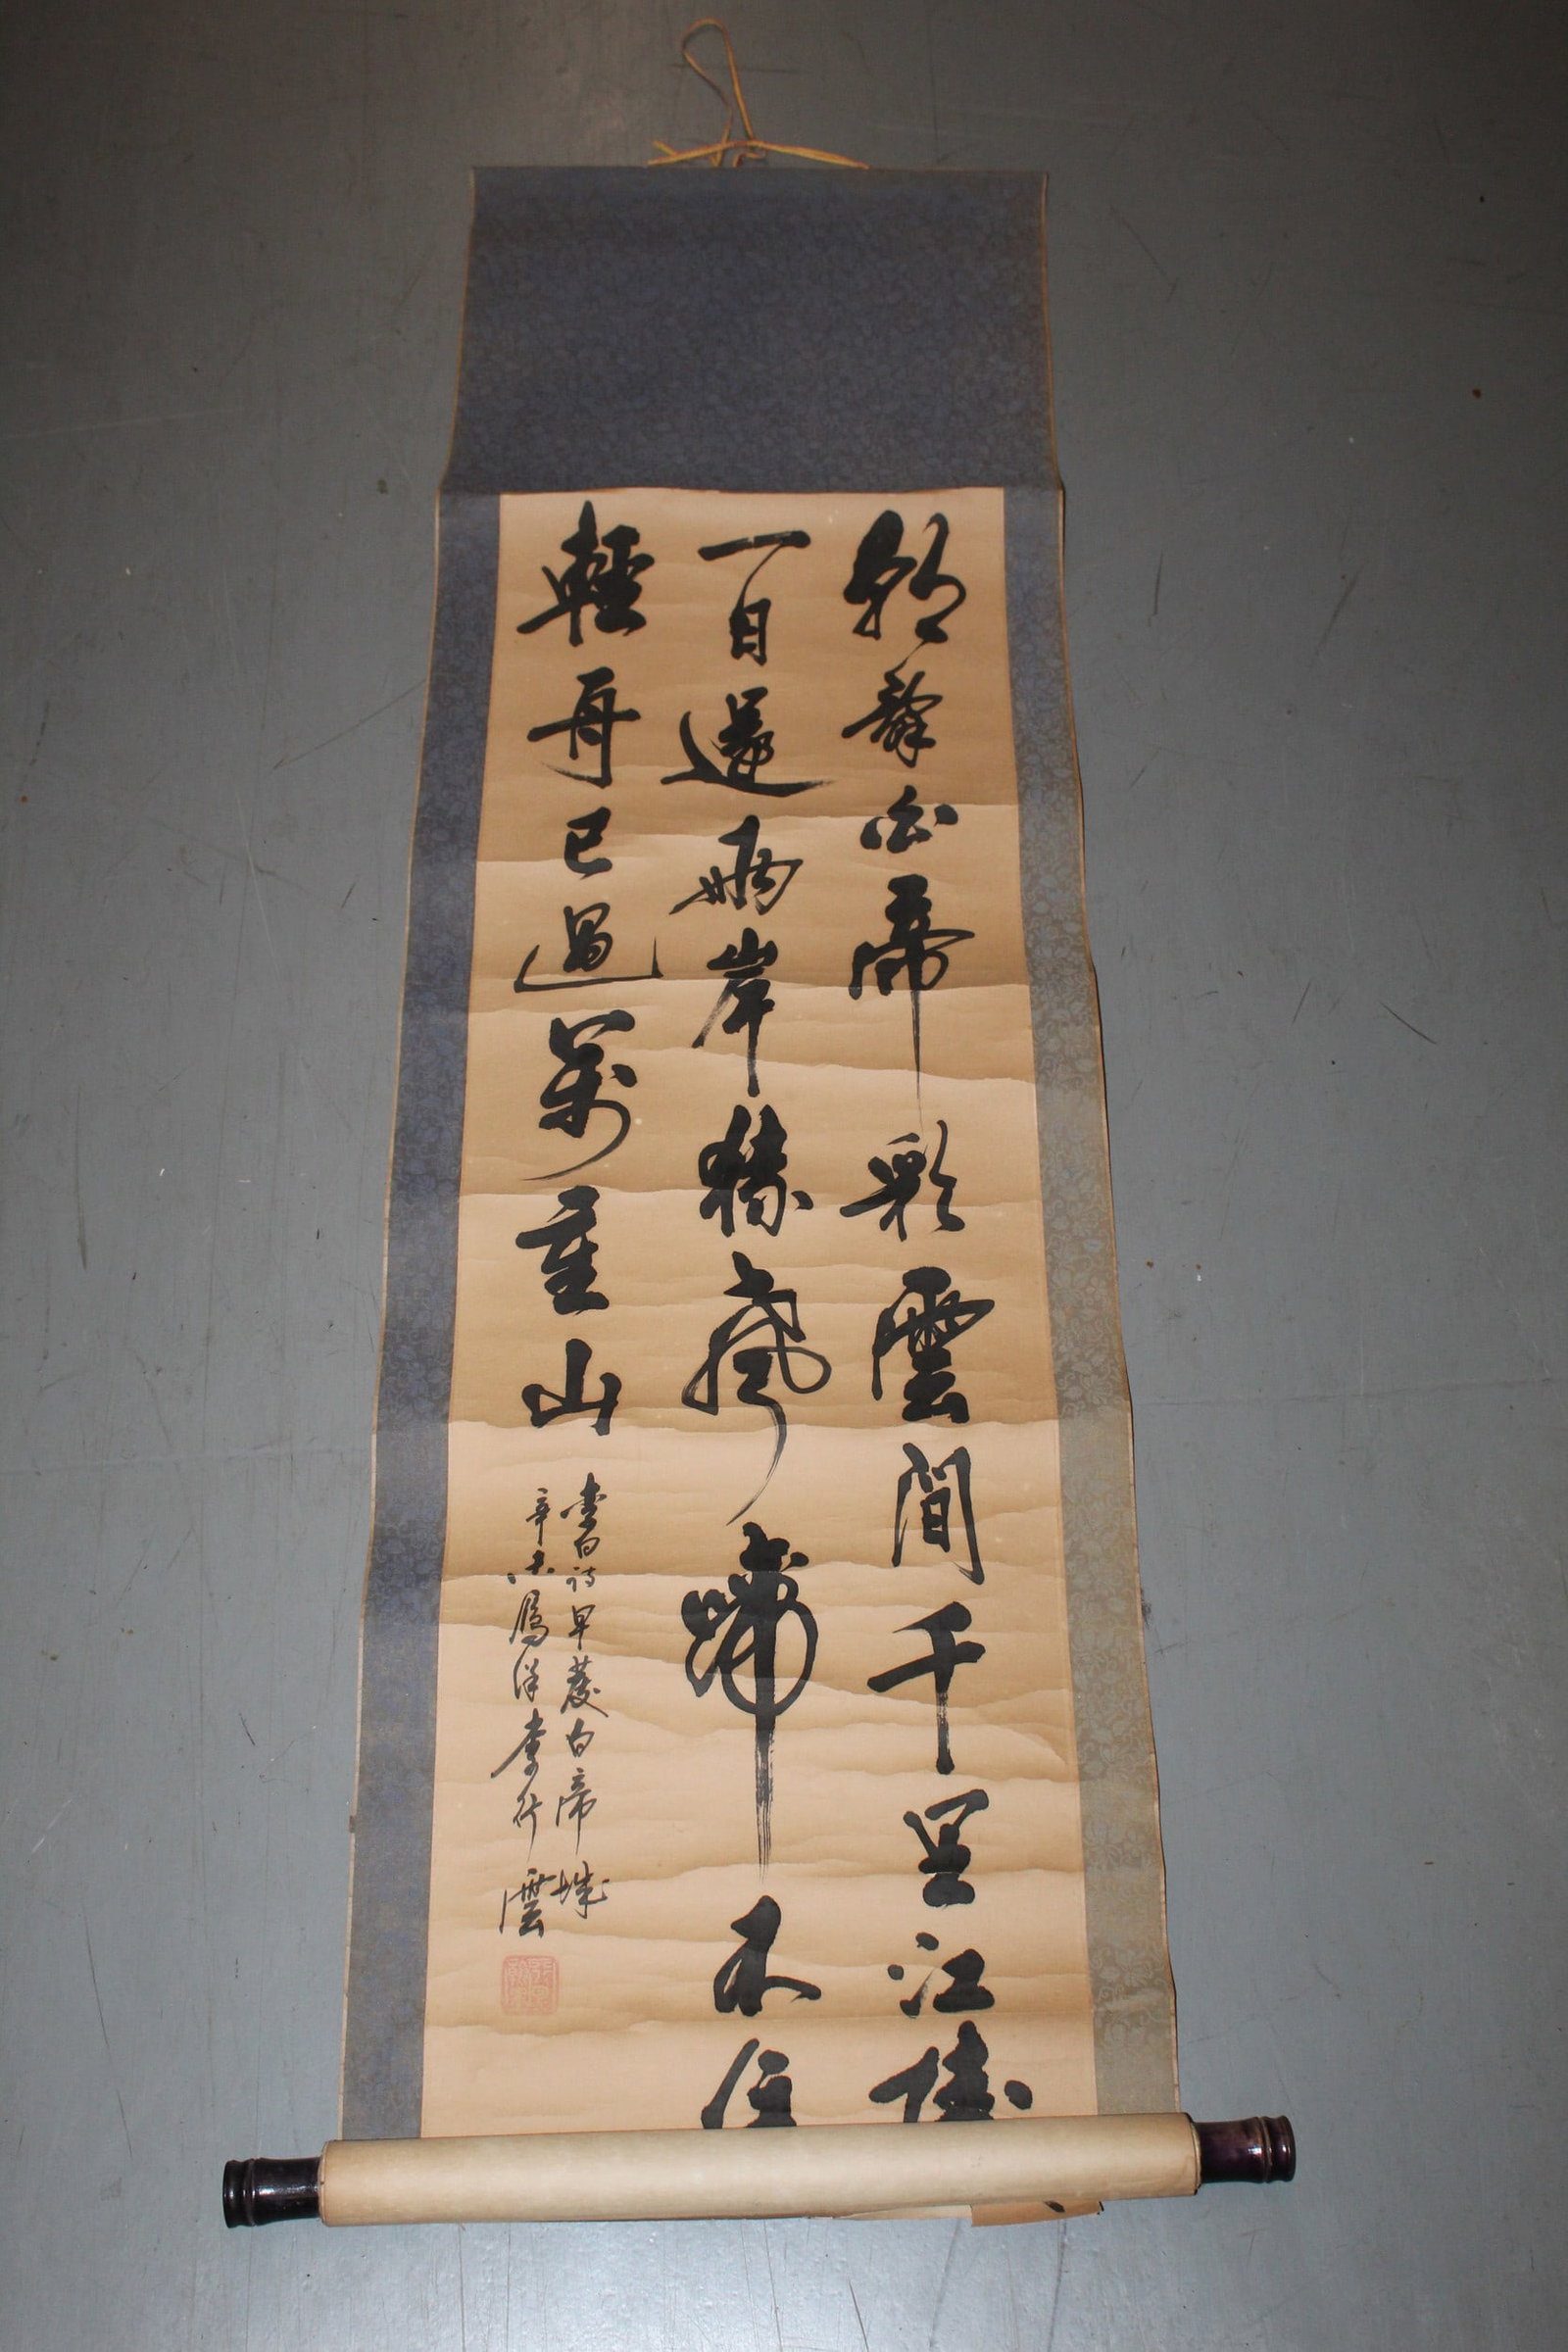 朝辭白帝彩雲間千里江陵
一日還兩岸猿聲啼不住
輕舟已過萬重山
李白詩早發白帝城
辛未 李行雲